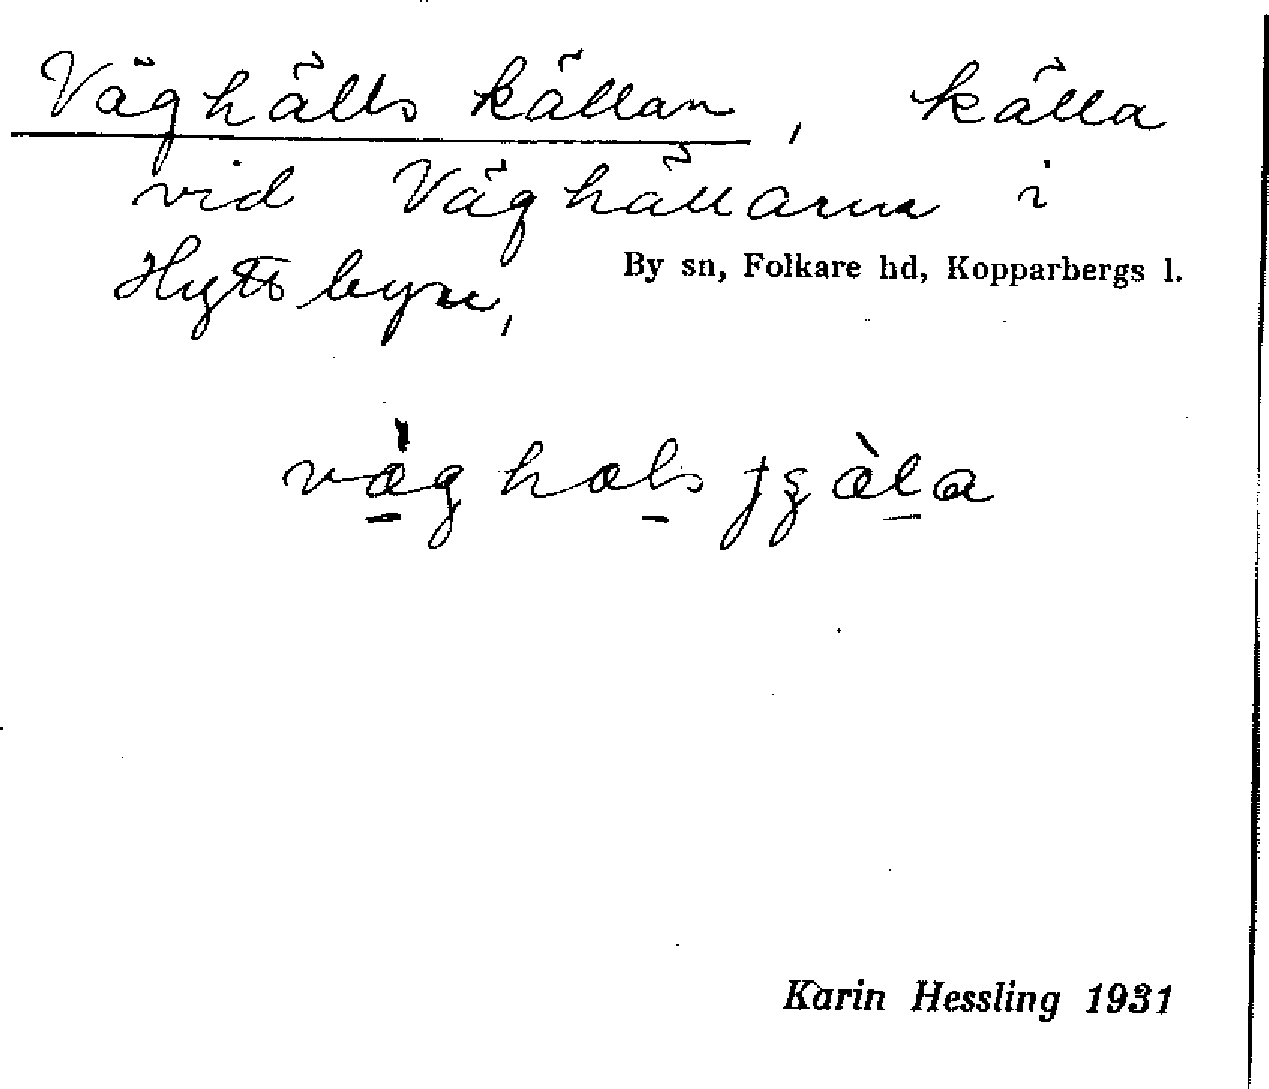 Väghälls källan, källa
vid Väghällarna i
Hyttbyn,
By sn, Folkare hd, Kopparbergs l.
Karin Hessling 1931